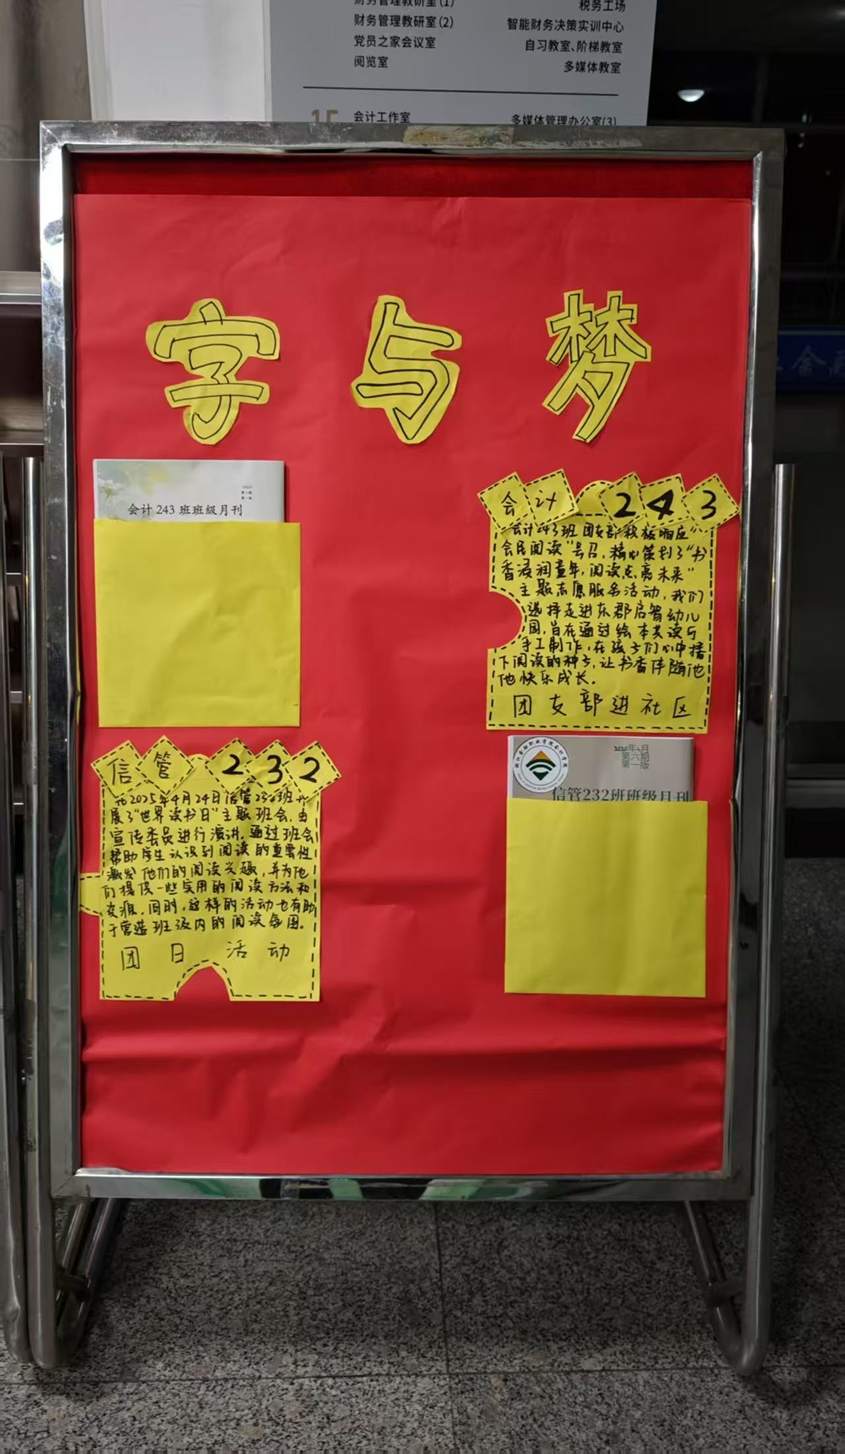 财务管理教研室(1)
税务工场
财务管理教研室(2)
智能财务决策实训中心
党员之家会议室
自习教室、阶梯教室
阅览室
多媒体教室
1F
会计工作室
多媒体管理办公室(3)
字与梦
会计243班班级月刊
会计243
会计243班团支部积极响应“
全民阅读”号召,精心策划了“书
香浸润童年,阅读点亮未来”
主题志愿服务活动,我们
选择走进东郡启智幼儿
园,旨在通过绘本共读与
手工制作,在孩子们心中播
下阅读的种子,让书香伴随他
他快乐成长。
团支部进社区
信管232
在2025年4月24日信管232班开
展了“世界读书日”主题班会,由
宣传委员进行演讲,通过班会
帮助学生认识到阅读的重要性
激发他们的阅读兴趣,并为他
们提供一些实用的阅读方法和
资源,同时,这样的活动也有助
于营造班级内的阅读氛围。
团日活动
第六期
第一版
信管232班班级月刊